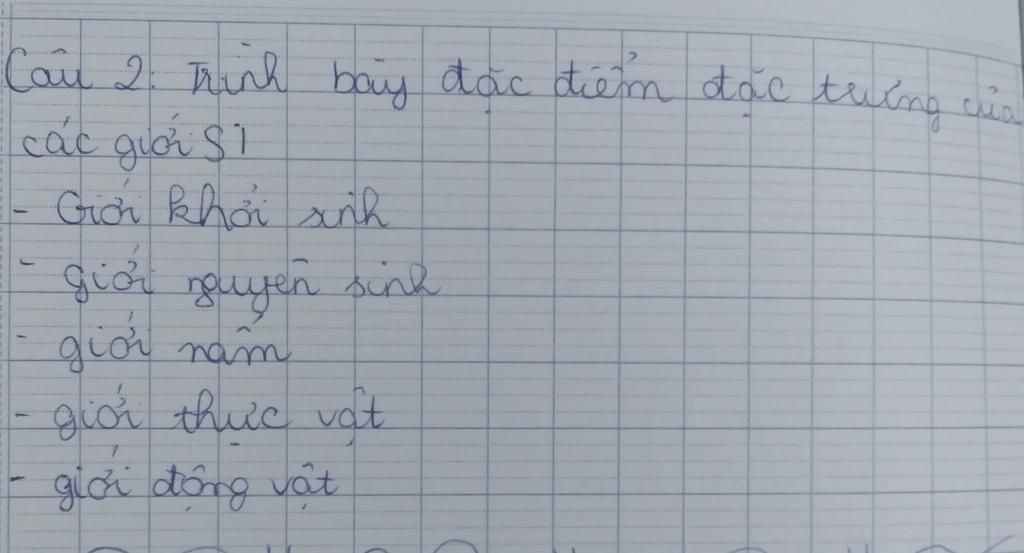 Câu 2. Trình bày đặc điểm đặc trưng của
các giới S1
- Giới khởi sinh
- giới nguyên sinh
- giới nấm
- giới thực vật
- giới động vật